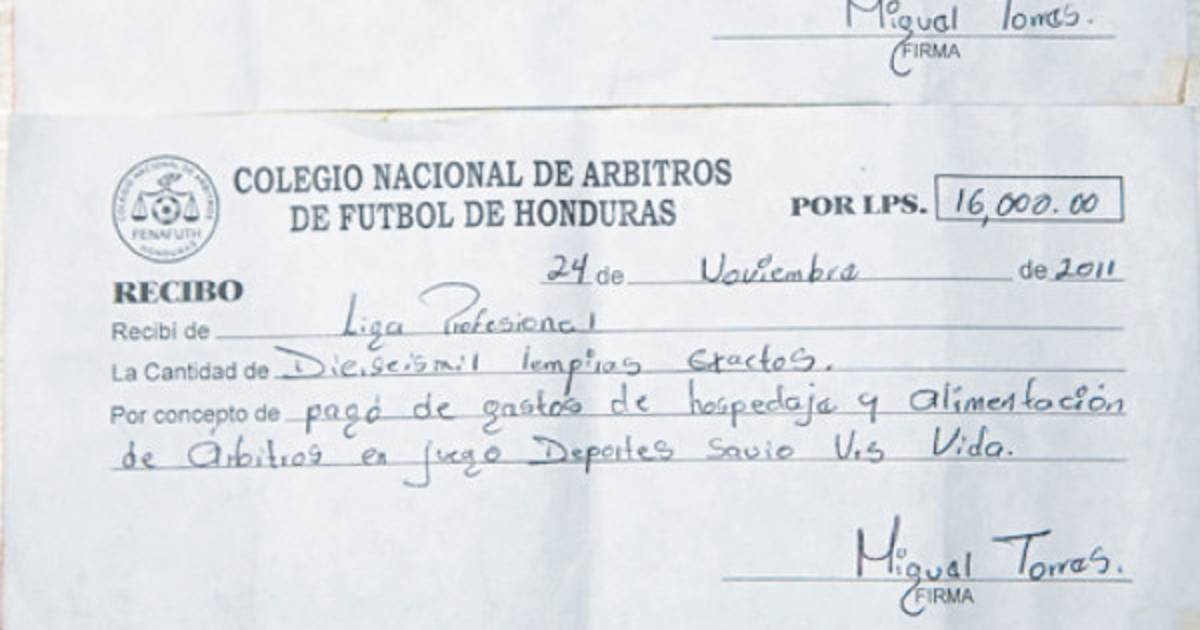 Miguel Torres.
FIRMA
COLEGIO NACIONAL DE ARBITROS
DE FUTBOL DE HONDURAS
FENAFUTH
HONDURAS
POR LPS. 16,000.00
24 de Noviembre de 2011
RECIBO
Recibi de Liga Profesional
La Cantidad de Dieiseismil lempiras Exactos.
Por concepto de pagó de gastos de hospedaje y alimentación
de Arbitros en juego Deportes Savio V.s Vida.
Miguel Torres.
FIRMA